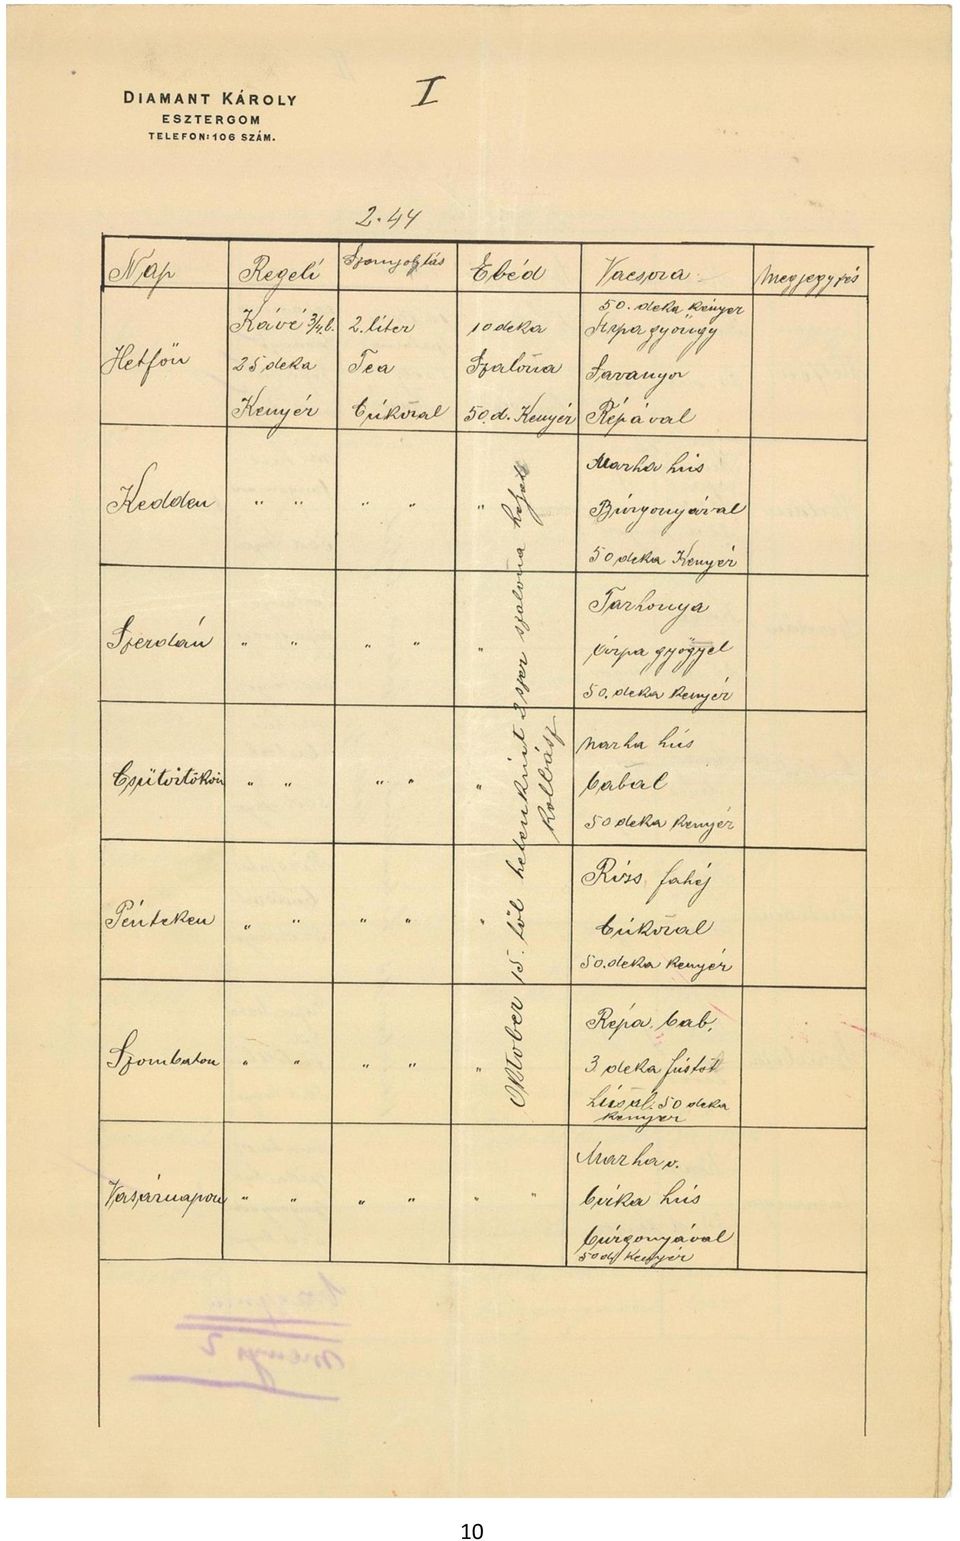 DIAMANT KÁROLY
ESZTERGOM
TELEFON: 106 SZÁM.
I
2.44
Nap Regeli Szomjoltás Ebéd Vacsora Megjegyzés
Hetfőn
Kávé 3/4 l.
25 deka
Kenyér
2. liter
Tea
Cúkoral
10 deka
Szalona
50. d. Kenyér
50. deka kenyer
Árpa gyöngy
Savanyo
Répával
Kedden " " " " "
Marha hús
Búrgonyával
50 deka Kenyér
Szerdán " " " " "
Tarhonya
Árpa gyögyel
50. deka kenyér
Csütörtökön " " " " "
Marha hús
babal
50 deka kenyér
Pénteken " " " " "
Rizs fahéj
Cúkoral
50. deka kenyér
Szombaton " " " " "
Répa. bab.
3 deka füstöt
húsal. 50 deka
kenyer
Vasárnapon " " " " " "
Marha v.
birka hús
búrgonyával
50 d. kenyér
Oktober 15. től hetenkint 2 szer szalona helyett
kolbász
10